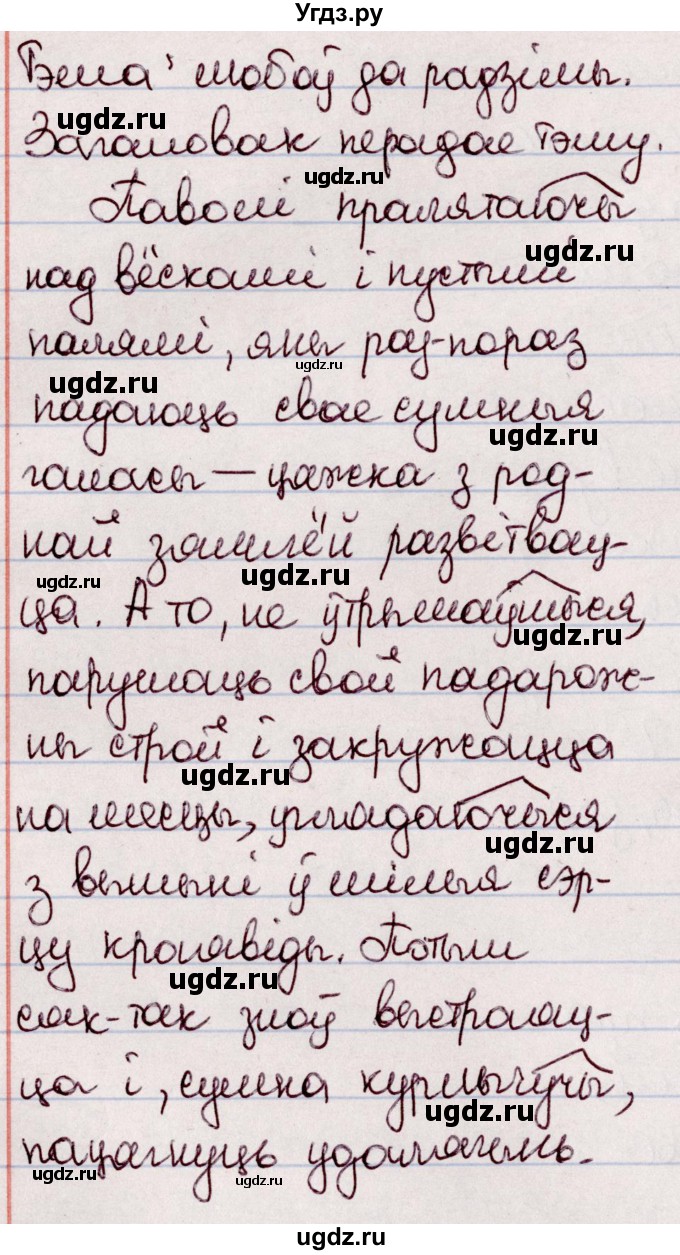 Угдз.ру
Тэма: любоў да радзімы.
ugdz.ru
Загаловак перадае тэму.
ugdz.ru
Паволі пралятаючы
ugdz.ru
над вёскамі і пустымі
палямі, яны раз-пораз
ugdz.ru
ugdz.ru
падаюць свае сумныя
ugdz.ru
галасы — цяжка з род-
най зямлёй развітвац-
ugdz.ru
ugdz.ru
ца. А то, не ўтрымаўшыся,
ugdz.ru
парушаць свой падарож-
ны строй і закружацца
ugdz.ru
на месцы, углядаючыся
ugdz.ru
з вышыні ў мілыя сэр-
цу краявіды. Потым
ugdz.ru
сяк-так зноў выстраяц-
ца і, сумна курлычучы,
ugdz.ru
пацягнуць удалячынь.
ugdz.ru
ugdz.ru
ugdz.ru